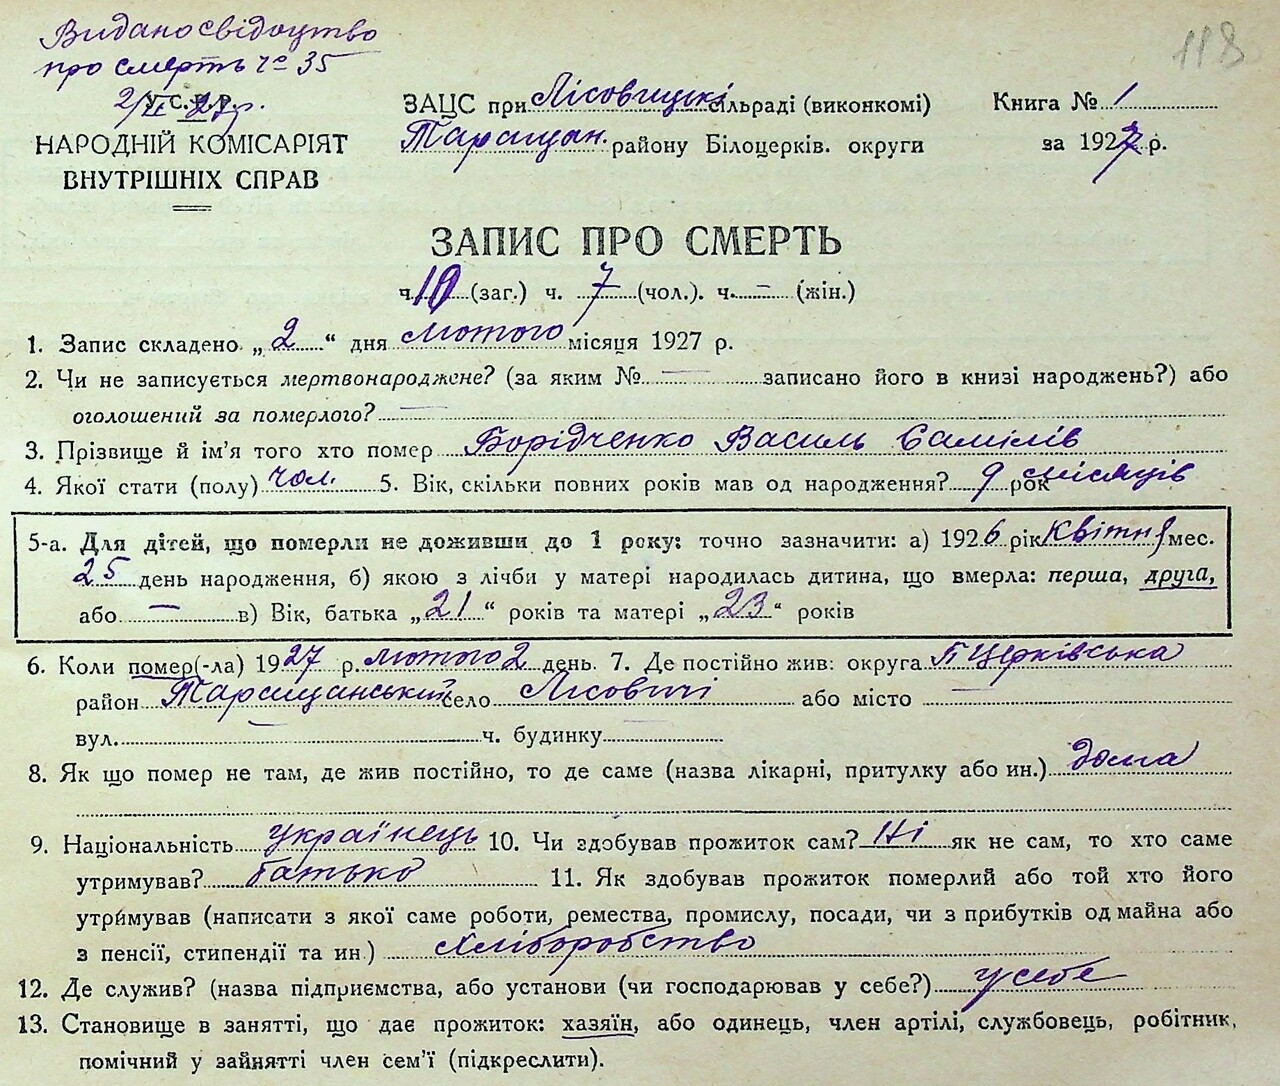 Видано свідоцтво
118
про смерть № 35
2/II 27 р.
У.С.Р.Р.
ЗАЦС при Лісовицькі сільраді (виконкомі)
Книга № 1
НАРОДНІЙ КОМІСАРІЯТ
Таращан. району Білоцерків. округи
за 1927 р.
ВНУТРІШНІХ СПРАВ
ЗАПИС ПРО СМЕРТЬ
ч. 10 (заг.) ч. 7 (чол.). ч. – (жін.)
1. Запис складено „ 2 “ дня лютого місяця 1927 р.
2. Чи не записується мертвонароджене? (за яким № — записано його в книзі народжень?) або
оголошений за померлого? —
3. Прізвище й ім’я того хто помер Борідченко Василь Самілів
4. Якої стати (полу) чол. 5. Вік, скільки повних років мав од народження? 9 рок місяців
5-а. Для дітей, що померли не доживши до 1 року: точно зазначити: а) 1926 рік Квітня мес.
25 день народження, б) якою з лічби у матері народилась дитина, що вмерла: перша, друга,
або — в) Вік, батька „ 21 “ років та матері „ 23 “ років
6. Коли помер(-ла) 1927 р. лютого 2 день. 7. Де постійно жив: округа Б Церківська
район Таращанський село Лісовичі або місто —
вул. — ч. будинку —
8. Як що помер не там, де жив постійно, то де саме (назва лікарні, притулку або ин.) дома
9. Національність українець 10. Чи здобував прожиток сам? Ні як не сам, то хто саме
утримував? батько 11. Як здобував прожиток померлий або той хто його
утримував (написати з якої саме роботи, ремества, промислу, посади, чи з прибутків од майна або
з пенсії, стипендії та ин.) Хліборобство
12. Де служив? (назва підприємства, або установи (чи господарював у себе?) у себе
13. Становище в занятті, що дає прожиток: хазяїн, або одинець, член артілі, службовець, робітник,
помічний у зайнятті член сем’ї (підкреслити).